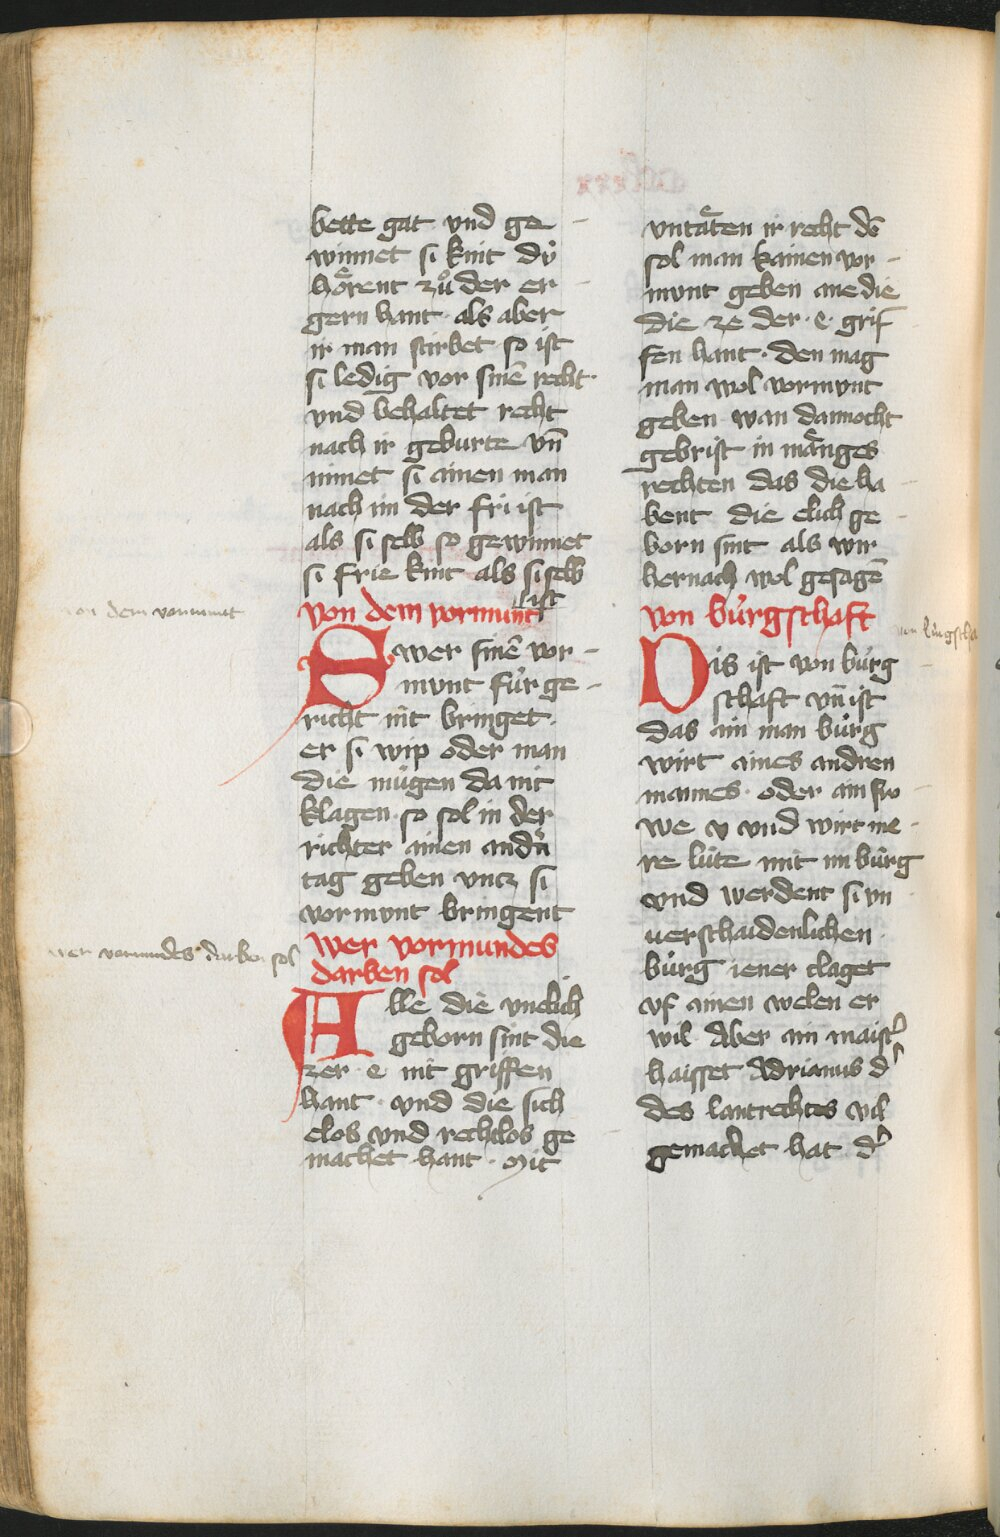 bette gat vnd ge
winnet si kint dü
hoͤrent zuͦ der er
gern hant · als aber
ir man stirbet so ist
si ledig vor sinē recht ·
vnd behaltet recht
nach ir geburte vn̄
nimet si ainen man
nach im der fri ist
als si selb so gewinnet
si frie kint als si selb
ist
von dem vormunt
von dem vormunt
Swer sinē vor
mvnt für ge
richt nit bringet ·
er si wip oder man
die mügen da nit
klagen · so sol in der
richter ainen andn̄
tag geben vncz si
vormvnt bringent
wer vormundes darben sol
wer vormundes
darben sol
Alle die vnelich
geborn sint die
zer · e · nit griffen
hant · vnd die sich
elos vnd rechtlos ge
machet hant · Mit
vntaͤten ir recht dē
sol man kainen vor
mvnt geben ane die
die ze der · e · grif
fen hant · den mag
man wol vormvnt
geben · wan dannocht
gebrist in maͤnges
rechten das die ha
bent die elich ge
born sint als wir
hernach wol gesagē
von bürgschaft
Dis ist von bürg
schaft vn̄ ist
das ain man bürg
wirt aines andren
mannes · oder ain fro
we v vnd wirt me
re lüte mit im bürg
vnd werdent si vn
uerschaidenlichen
bürg iener claget
vf ainen welen er
wil · Aber ain maist̾
haisset Adrianus d̾
des lantrechtes vil
gemachet hat d̾